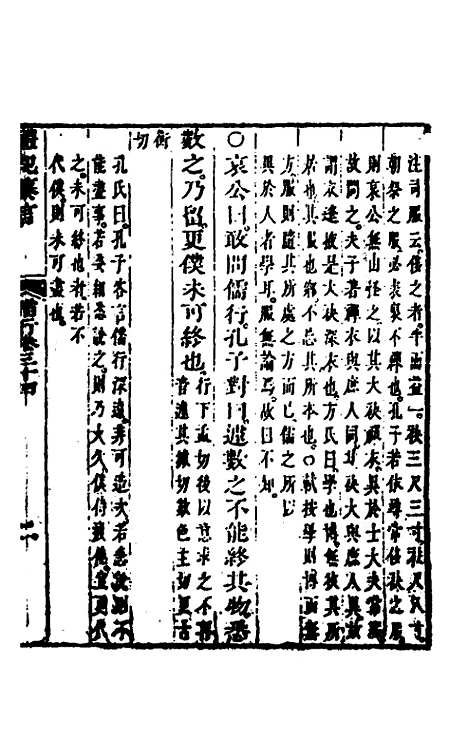 注司服云侈之者半而益一袂三尺三寸袪尺八寸
朝祭之服必表裏不禪也孔子若依尋常侈袂之服
則哀公無由怪之以其大袂禪衣異於士大夫常服
故問之夫子著禪衣與庶人同其袂大與庶人異故
謂衣逢掖是大袂深衣也方氏曰學也博無彼異所
若也其服也鄉不忘其所本也○欽按學則博而無
方服則隨其所處之方而已儒之所以
異於人者學耳服無論焉故曰不知
○哀公曰敢問儒行孔子對曰遽數之不能終其物悉
數之乃留更僕未可終也行下孟切後以意求之不音
音遽其據切數色主切更古
衡切
孔氏曰孔子答言儒行深遠非可造次若急說則不
能盡事若委細悉說之則乃大久僕侍疲倦宜更代
之未可終也若不
代僕則未可盡也
禮記集言
儒行卷三十四
二